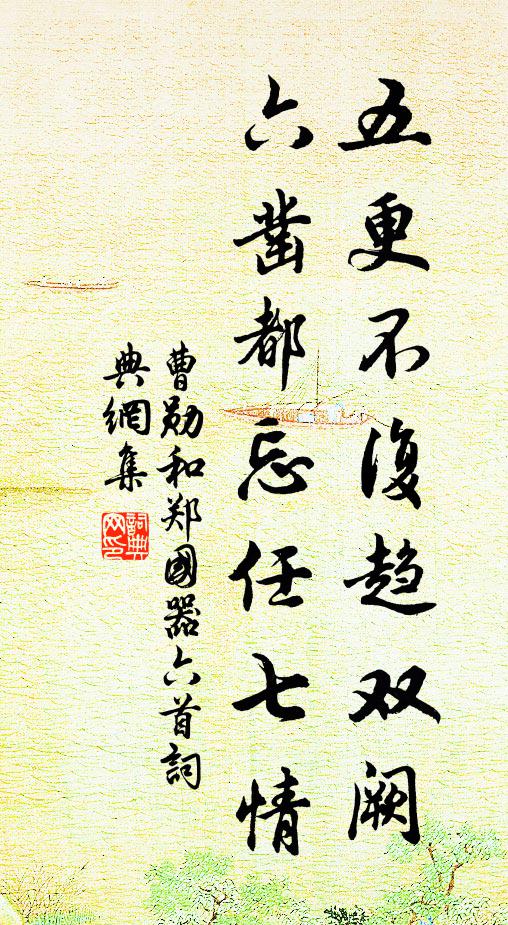 五更不復趋双阙
六凿都忘任七情
曹勛和郑國器六首詞
典網集
詞典
网印